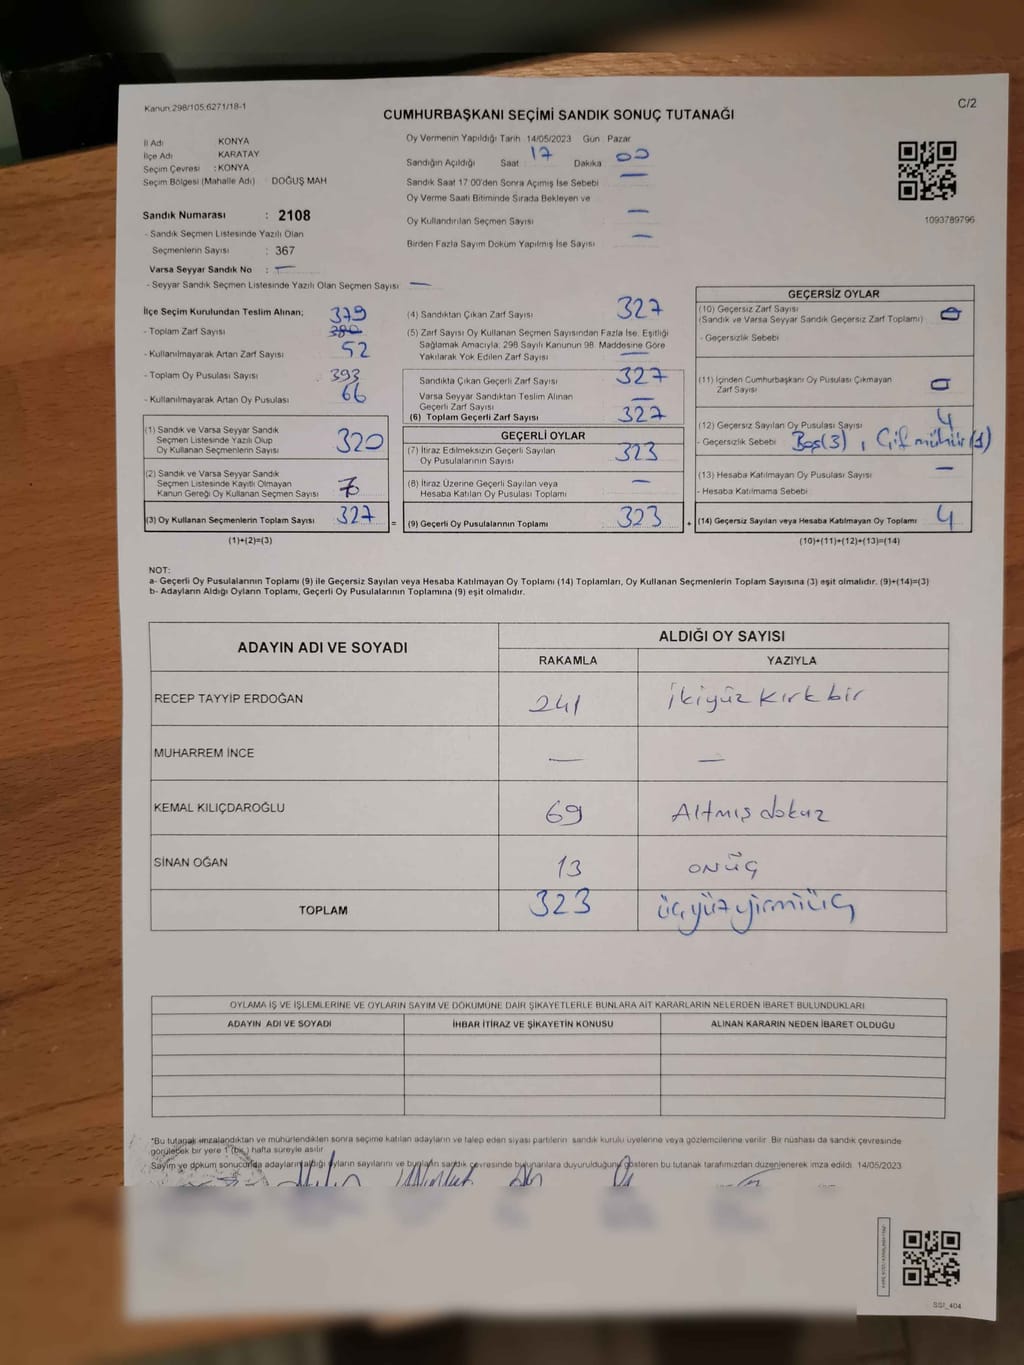 Kanun:298/105;6271/18-1
C/2
CUMHURBAŞKANI SEÇİMİ SANDIK SONUÇ TUTANAĞI
İl Adı KONYA
İlçe Adı KARATAY
Seçim Çevresi : KONYA
Seçim Bölgesi (Mahalle Adı) DOĞUŞ MAH
Sandık Numarası : 2108
- Sandık Seçmen Listesinde Yazılı Olan
Seçmenlerin Sayısı : 367
Varsa Seyyar Sandık No : —
- Seyyar Sandık Seçmen Listesinde Yazılı Olan Seçmen Sayısı —
Oy Vermenin Yapıldığı Tarih 14/05/2023 Gün Pazar
Sandığın Açıldığı Saat 17 Dakika 00
Sandık Saat 17:00'den Sonra Açımış İse Sebebi —
Oy Verme Saati Bitiminde Sırada Bekleyen ve
Oy Kullandırılan Seçmen Sayısı —
Birden Fazla Sayım Döküm Yapılmış İse Sayısı —
1093789796
İlçe Seçim Kurulundan Teslim Alınan; 379
- Toplam Zarf Sayısı 380
- Kullanılmayarak Artan Zarf Sayısı 52
- Toplam Oy Pusulası Sayısı 393
- Kullanılmayarak Artan Oy Pusulası 66
(1) Sandık ve Varsa Seyyar Sandık
Seçmen Listesinde Yazılı Olup
Oy Kullanan Seçmenlerin Sayısı 320
(2) Sandık ve Varsa Seyyar Sandık
Seçmen Listesinde Kayıtlı Olmayan
Kanun Gereği Oy Kullanan Seçmen Sayısı 7
(3) Oy Kullanan Seçmenlerin Toplam Sayısı 327
(1)+(2)=(3)
(4) Sandıktan Çıkan Zarf Sayısı 327
(5) Zarf Sayısı Oy Kullanan Seçmen Sayısından Fazla İse, Eşitliği
Sağlamak Amacıyla; 298 Sayılı Kanunun 98. Maddesine Göre
Yakılarak Yok Edilen Zarf Sayısı —
Sandıkta Çıkan Geçerli Zarf Sayısı 327
Varsa Seyyar Sandıktan Teslim Alınan
Geçerli Zarf Sayısı —
(6) Toplam Geçerli Zarf Sayısı 327
GEÇERLİ OYLAR
(7) İtiraz Edilmeksizin Geçerli Sayılan
Oy Pusulalarının Sayısı 323
(8) İtiraz Üzerine Geçerli Sayılan veya
Hesaba Katılan Oy Pusulası Toplamı —
= (9) Geçerli Oy Pusulalarının Toplamı 323 +
GEÇERSİZ OYLAR
(10) Geçersiz Zarf Sayısı 0
(Sandık ve Varsa Seyyar Sandık Geçersiz Zarf Toplamı)
- Geçersizlik Sebebi
(11) İçinden Cumhurbaşkanı Oy Pusulası Çıkmayan
Zarf Sayısı 0
(12) Geçersiz Sayılan Oy Pusulası Sayısı 4
- Geçersizlik Sebebi Boş(3), Çift mühür(1)
(13) Hesaba Katılmayan Oy Pusulası Sayısı —
- Hesaba Katılmama Sebebi
(14) Geçersiz Sayılan veya Hesaba Katılmayan Oy Toplamı 4
(10)+(11)+(12)+(13)=(14)
NOT:
a- Geçerli Oy Pusulalarının Toplamı (9) ile Geçersiz Sayılan veya Hesaba Katılmayan Oy Toplamı (14) Toplamları, Oy Kullanan Seçmenlerin Toplam Sayısına (3) eşit olmalıdır. (9)+(14)=(3)
b- Adayların Aldığı Oyların Toplamı, Geçerli Oy Pusulalarının Toplamına (9) eşit olmalıdır.
ADAYIN ADI VE SOYADI ALDIĞI OY SAYISI
RAKAMLA YAZIYLA
RECEP TAYYİP ERDOĞAN 241 ikiyüz kırk bir
MUHARREM İNCE — —
KEMAL KILIÇDAROĞLU 69 Altmış dokuz
SİNAN OĞAN 13 onüç
TOPLAM 323 üçyüzyirmiüç
OYLAMA İŞ VE İŞLEMLERİNE VE OYLARIN SAYIM VE DÖKÜMÜNE DAİR ŞİKAYETLERLE BUNLARA AİT KARARLARIN NELERDEN İBARET BULUNDUKLARI
ADAYIN ADI VE SOYADI İHBAR İTİRAZ VE ŞİKAYETİN KONUSU ALINAN KARARIN NEDEN İBARET OLDUĞU
*Bu tutanak imzalandıktan ve mühürlendikten sonra seçime katılan adayların ve talep eden siyasi partilerin sandık kurulu üyelerine veya gözlemcilerine verilir. Bir nüshası da sandık çevresinde
görülecek bir yere 1 (bir) hafta süreyle asılır
Sayım ve döküm sonucunda adayların aldığı oyların sayılarını ve bunların sandık çevresinde bulunanlara duyurulduğunu gösteren bu tutanak tarafımızdan düzenlenerek imza edildi. 14/05/2023
SSI_404